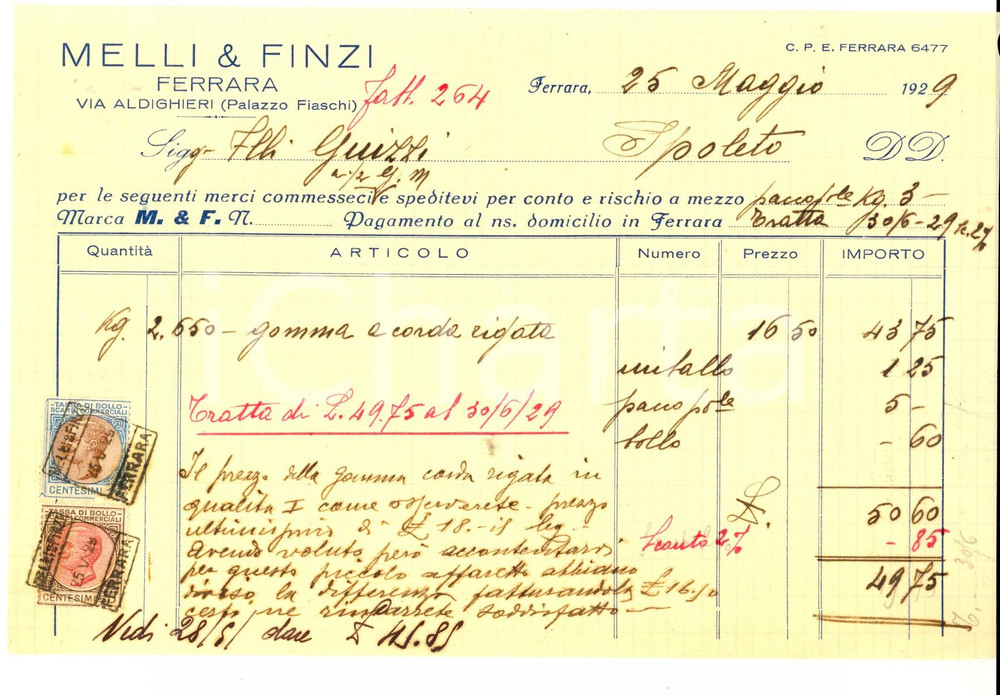 MELLI & FINZI
FERRARA
VIA ALDIGHIERI (Palazzo Fiaschi)
fatt. 264
C. P. E. FERRARA 6477
Ferrara, 25 Maggio 1929
Sigg. Flli Guizzi Spoleto DD.
a/2 G. M
per le seguenti merci commesseci e speditevi per conto e rischio a mezzo pacco ple Kg. 3-
Marca M. & F. N. Pagamento al ns. domicilio in Ferrara tratta 30/6-29 sc. 2%
Quantità ARTICOLO Numero Prezzo IMPORTO
Kg. 2.650 - gomma a corda rigata 16 50 43 75
imballo 1 25
Tratta di L. 49.75 al 30/6/29 pacco ple 5 -
bollo - 60
Il prezzo della gomma corda rigata in
qualità I come osserverete prezzo
di £ 18.- 
L. 50 60
Avendo voluto però accontentarvi
Sconto 2% - 85
per questo piccolo affaretto abbiamo
diviso la differenza fatturandola £ 16.50
49 75
certo ne rimarrete soddisfatto -
Vedi 28/5/ dare £ 45.85
TASSA DI BOLLO
SCAMBI COMMERCIALI
MELLI & FINZI
25 V 29
FERRARA
CENTESIMI
TASSA DI BOLLO
SCAMBI COMMERCIALI
MELLI & FINZI
25 V 29
FERRARA
CENTESIMI
iCharta